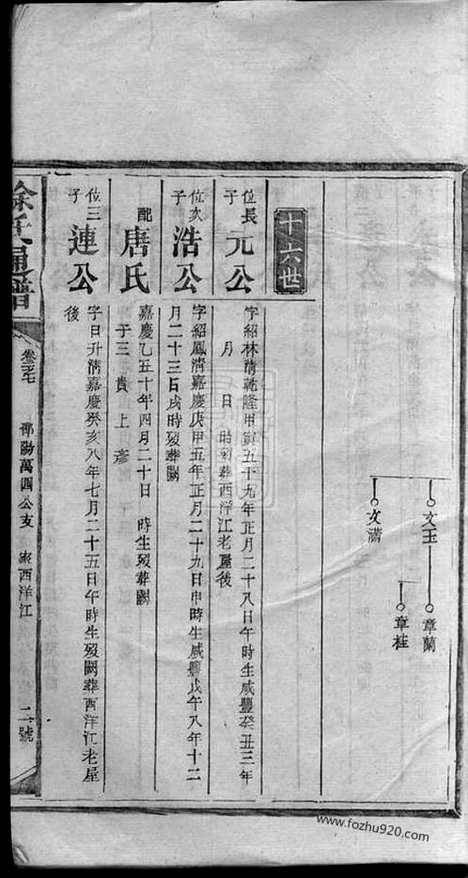 文玉
章蘭
章桂
文瀟
十六世
長位子
元公
字紹林清乾隆甲寅五十九年正月二十八日午時生咸豐癸丑三年
月 日 時歿葬西洋江老屋後
次位子
浩公
字紹鳳清嘉慶庚申五年正月二十九日申時生咸豐戊午八年十二
月二十三日戌時歿葬闕
配
唐氏
嘉慶乙丑十年四月二十日 時生歿葬闕
子三 貴 上 彥
三位子
連公
字日升清嘉慶癸亥八年七月二十五日午時生歿闕葬西洋江老屋
後
徐氏通譜
鄱陽萬四公支
西洋江
二號
www.fozhu920.com